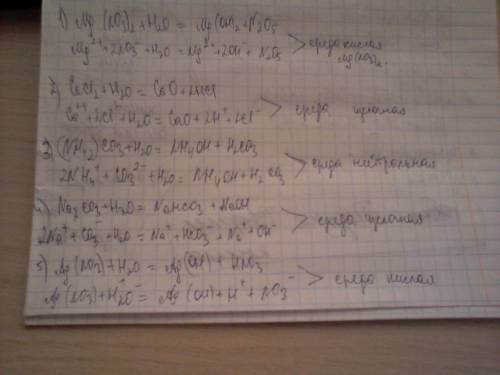 1) Mg(NO3)2 + H2O = Mg(OH)2 + N2O5
Mg2+ + 2NO3- + H2O = Mg2+ + 2OH- + N2O5 > среда кислая Mg(NO3)2.
2) CaCl2 + H2O = CaO + 2HCl
Ca++ + 2Cl- + H2O = CaO + 2H+ + 2Cl- > среда щелочная
3) (NH4)2CO3 + H2O = NH4OH + H2CO3
2NH4+ + CO3 2- + H2O = NH4OH + H2CO3 > среда нейтральная
4) Na2CO3 + H2O = NaHCO3 + NaOH
2Na+ + CO3- + H2O = Na+ + HCO3- + Na+ + OH- > среда щелочная
5) Ag(NO3) + H2O = Ag(OH) + HNO3
Ag(NO3) + H2O = Ag(OH) + H+ + NO3- > среда кислая